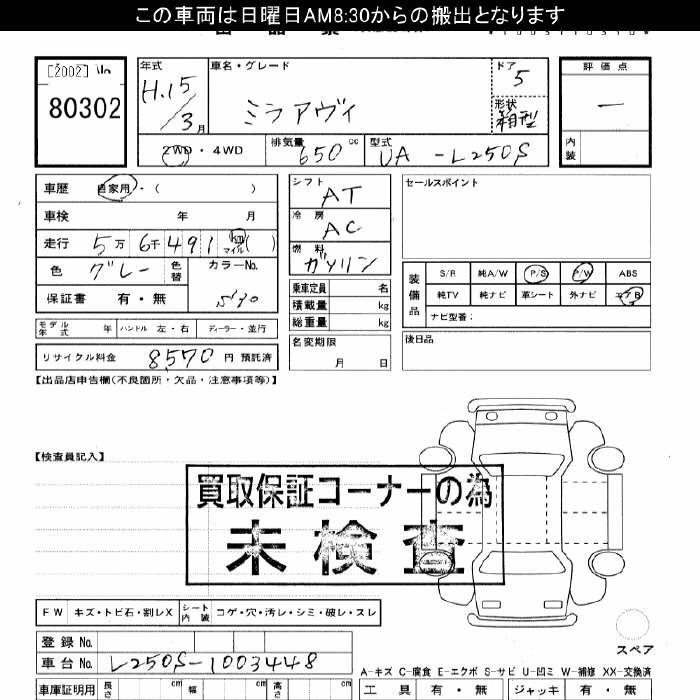 この車両は日曜日AM8:30からの搬出となります
[2002] No
80302
年式 車名・グレード ドア 評価点
H.15/3月 ミラアヴィ 5 —
形状 箱型
2WD・4WD 排気量 650 cc 型式 UA-L250S 内装
車歴 自家用・( )
車検 年 月
走行 5万6千491 km マイル ( )
色 グレー 色替 カラーNo. S'70
保証書 有・無
シフト AT
冷房 AC
燃料 ガソリン
乗車定員 名
積載量 kg
総重量 kg
名変期限 月 日
セールスポイント
装備品 S/R 純A/W P/S P/W ABS
純TV 純ナビ 革シート 外ナビ エアB
ナビ型番:
後日品
モデル年式 年 ハンドル 左・右 ディーラー・並行
リサイクル料金 8570 円 預託済
【出品店申告欄(不良箇所・欠品・注意事項等)】
【検査員記入】
買取保証コーナーの為
未検査
FW キズ・トビ石・割レX シート内装 コゲ・穴・汚レ・シミ・破レ・スレ
スペア
登録No.
車台No. L250S-1003448
A-キズ C-腐食 E-エクボ S-サビ U-凹ミ W-補修 XX-交換済
車庫証明用 長さ cm 幅 cm 高さ cm 工具 有・無 ジャッキ 有・無